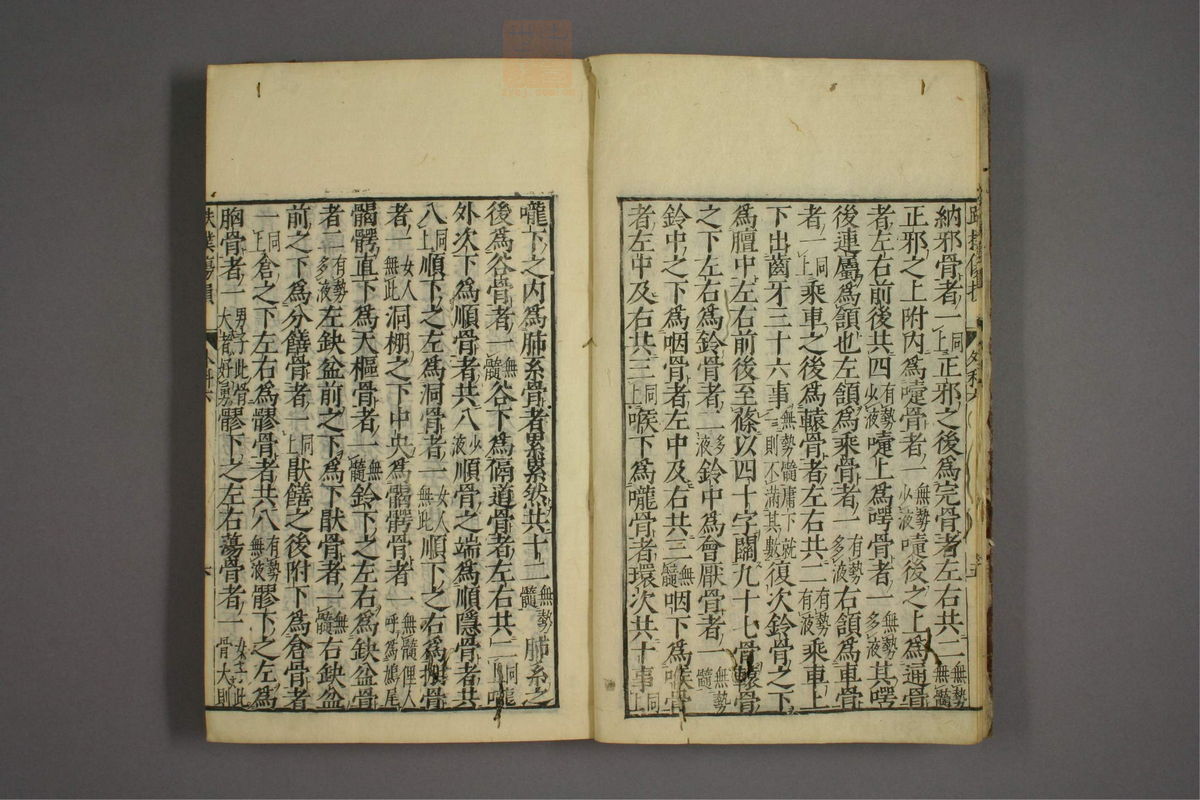 納邪骨者一同上正邪之後為完骨者左右共二無髓
正邪之上附內為嚏骨者一無勢少液嚏後之上為通骨
者左右前後共四有勢少液嚏上為㗁骨者一無勢多液其㗁
後連屬為頷也左頷為乘骨者一有勢多液右頷為車骨
者一同上乘車之後為轅骨者左右共二有勢有液乘車上
下出齒牙三十六事無勢髓庸下就一則不滿其數復次鈴骨之下
為膻中左右前後至篠以四十字關九十七骨轅骨
之下左右為鈴骨者二多液鈴中為會厭骨者一無勢髓
鈴中之下為咽骨者左中及右共三無髓咽下為喉骨
者左中及右共三同上喉下為嚨骨者環次共十事同上
嚨下之內為肺系骨者累累然共十二無勢髓肺系之
後為谷骨者一無髓谷下為偏道骨者左右共二同嚨
外次下為順骨者共八少液順骨之端為順隱骨者共
八同上順下之左為洞骨者一女人無此順下之右為棚骨
者一女人無此洞棚之下中央為䯏骬骨者一無髓俚人呼為鳩尾
䯏骬直下為天樞骨者一無髓鈴下之左右為缺盆骨
者二有勢多液左缺盆前之下為下猒骨者一無髓右缺盆
前之下為分饍骨者一同上猒饍之後附下為倉骨者
一同上倉之下左右為髎骨者共八有勢無液髎下之左為
胸骨者一男子此骨大者好勇髎下之左右蕩骨者一女子此骨大則